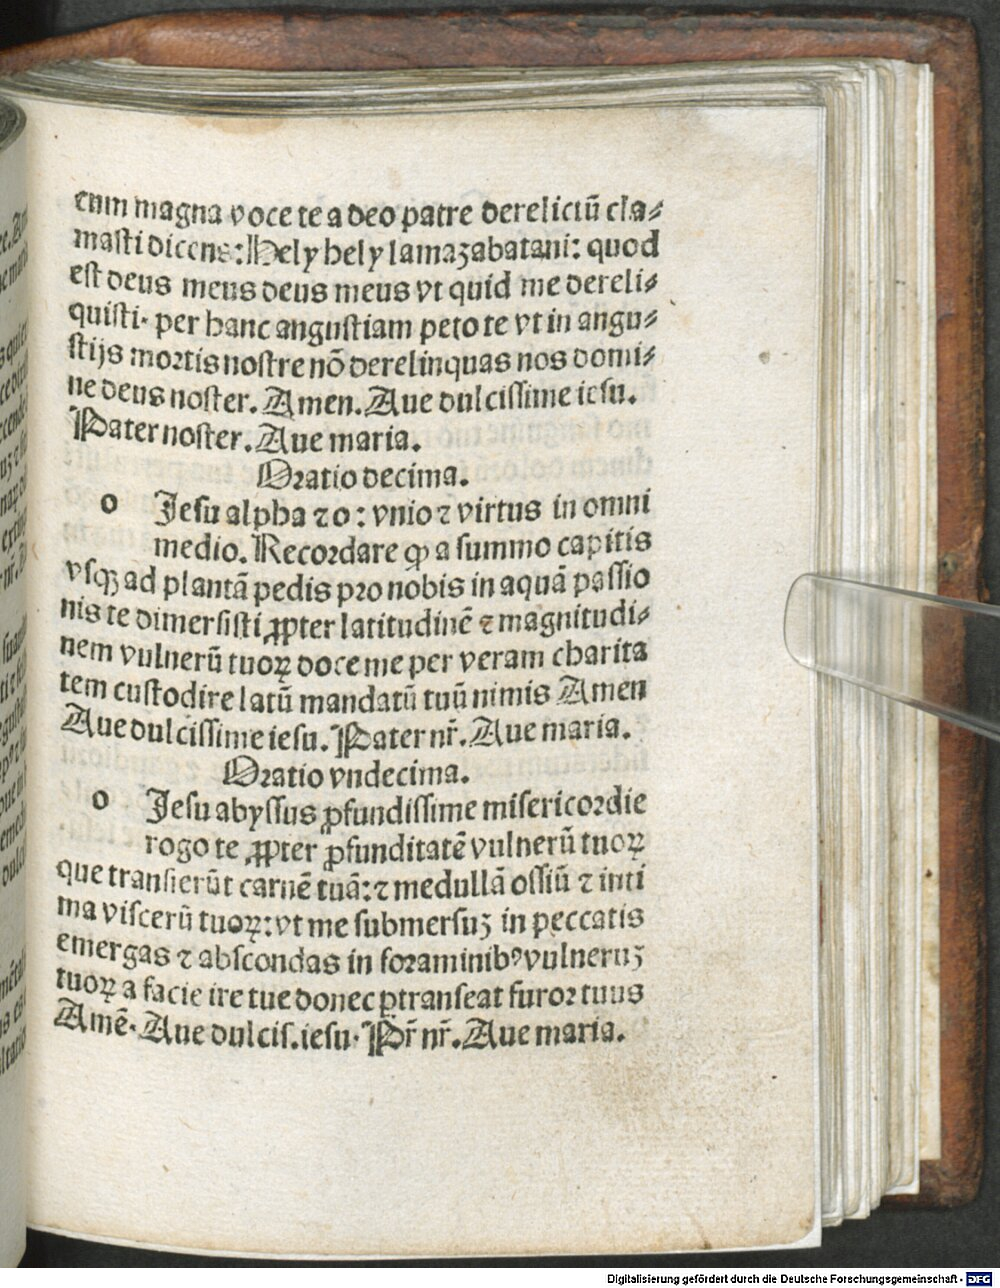 cum magna voce te a deo patre derelictũ cla⸗
masti dicens: Hely hely lamazabatani: quod
est deus meus deus meus vt quid me dereli⸗
quisti. per hanc angustiam peto te vt in angu⸗
stijs mortis nostre nõ derelinquas nos domi⸗
ne deus noster. Amen. Aue dulcissime iesu.
Pater noster. Aue maria.
Oratio decima.
o Jesu alpha ⁊ o: vnio ⁊ virtus in omni
medio. Recordare ꝙ a summo capitis
vsqꝫ ad plantã pedis pro nobis in aquã passio
nis te dimersisti ꝓpter latitudinẽ ⁊ magnitudi⸗
nem vulnerũ tuoꝝ doce me per veram charita
tem custodire latũ mandatũ tuũ nimis Amen
Aue dulcissime iesu. Pater nr̃. Aue maria.
Oratio vndecima.
o Jesu abyssus ꝓfundissime misericordie
rogo te ꝓpter ꝓfunditatẽ vulnerũ tuoꝝ
que transierũt carnẽ tuã: ⁊ medullã ossiũ ⁊ inti
ma viscerũ tuoꝝ: vt me submersuꝫ in peccatis
emergas ⁊ abscondas in foraminibꝰ vulneruꝫ
tuoꝝ a facie ire tue donec ꝑtranseat furor tuus
Amẽ. Aue dulcis. iesu. Pr̃ nr̃. Aue maria.
Digitalisierung gefördert durch die Deutsche Forschungsgemeinschaft - DFG